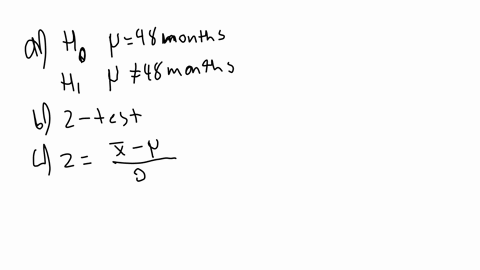 a) H₀ μ=48months
H₁ μ≠48months
b) z-test
c) z = (x̄ - μ) / σ